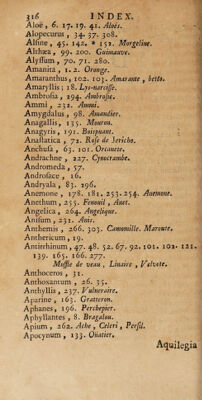 316 INDEX.
Aloë, 6. 17. 19. 41. Aloès.
Alopecurus, 34. 37. 308.
Alsine, 45. 142. * 152. Morgeline.
Althæa, 99. 200. Guimauve.
Alyssum, 70. 71. 280.
Amanita, 1. 2. Oronge.
Amaranthus, 102. 103. Amarante, bette.
Amaryllis; 18. Lys-narcisse.
Ambrosia, 294. Ambrosie.
Ammi, 232. Ammi.
Amygdalus, 98. Amandier.
Anagallis, 135. Mouron.
Anagyris, 191. Boispuant.
Anastatica, 72. Rose de Jericho.
Anchusa, 63. 101. Orcanete.
Andrachne, 227. Cynocrambe.
Andromeda, 57.
Androsace, 16.
Andryala, 83. 296.
Anemone, 178. 181. 253. 254. Anemone.
Anethum, 255. Fenouil, Anet.
Angelica, 264. Angelique.
Anisum, 231. Anis.
Anthemis, 266. 303. Camomille. Maroute.
Anthericum, 19.
Antirrhinum, 47. 48. 52. 67. 92. 101. 102. 121.
139. 165. 166. 277.
Muffle de veau, Linaire, Velvote.
Anthoceros, 31.
Anthoxantum, 26. 35.
Anthyllis, 237. Vulneraire.
Aparine, 163. Grateron.
Aphanes, 196. Percepier.
Aphyllantes, 8. Bragalou.
Apium, 262. Ache, Celeri, Persil.
Apocynum, 133. Ouatier.
Aquilegia